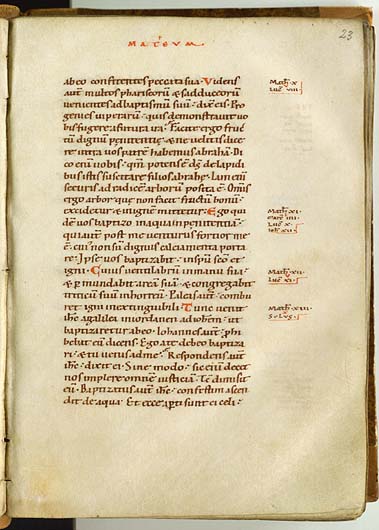 MATEUM
23
ab eo confitentes peccata sua. Videns
aut multos phariseorũ & sadducorũ
venientes ad baptismũ suũ. dix eis. Pro
genies viperarũ. quis demonstravit vo
bis fugere a futura ira. Facite ergo fruc
tũ dignũ penitentię. & ne velitis dice
re intra vos patrẽ habemus abrahã. Di
co enĩ vobis. qm̃ potens ẽ ds̃ de lapidi
bus istis suscitare filios abrahę. Iam enĩ
securis ad radicẽ arborũ posita ẽ. Omis
ergo arbor quę non facit fructũ bonũ.
excidetur & in ignẽ mittetur. Ego qui
dẽ vos baptizo in aqua in penitentia.
qui aut post me venturus fortior me
ẽ. cui non sũ dignus calciamenta porta
re. Ipse vos baptizabit in spũ sc̃o et
igni. Cuius ventilabrũ in manu sua.
& permundabit areã suã. & congregabit
triticũ suũ in horreũ. Paleas aut combu
ret igni inextinguibili. Tunc venit
ihc a galilea in iordanen ad iohẽn. ut
baptizaretur ab eo. Iohannes aut phi
bebat eũ dicens. Ego a te debeo baptiza
ri. & tu venis ad me. Respondens aut
ihc. dixit ei. Sine modo. sic enĩ decet
nos implere omnẽ iusticiã. Tc̃ dimisit
eũ. Baptizatus aut ihc. confestim ascen
dit de aqua. Et ecce apti sunt ei celi.
Math X
Luc VIII
Math XI
Marc IIII
Luc X
Ioh XII
Math XII
Luc XI
Math XIII
SOLUS